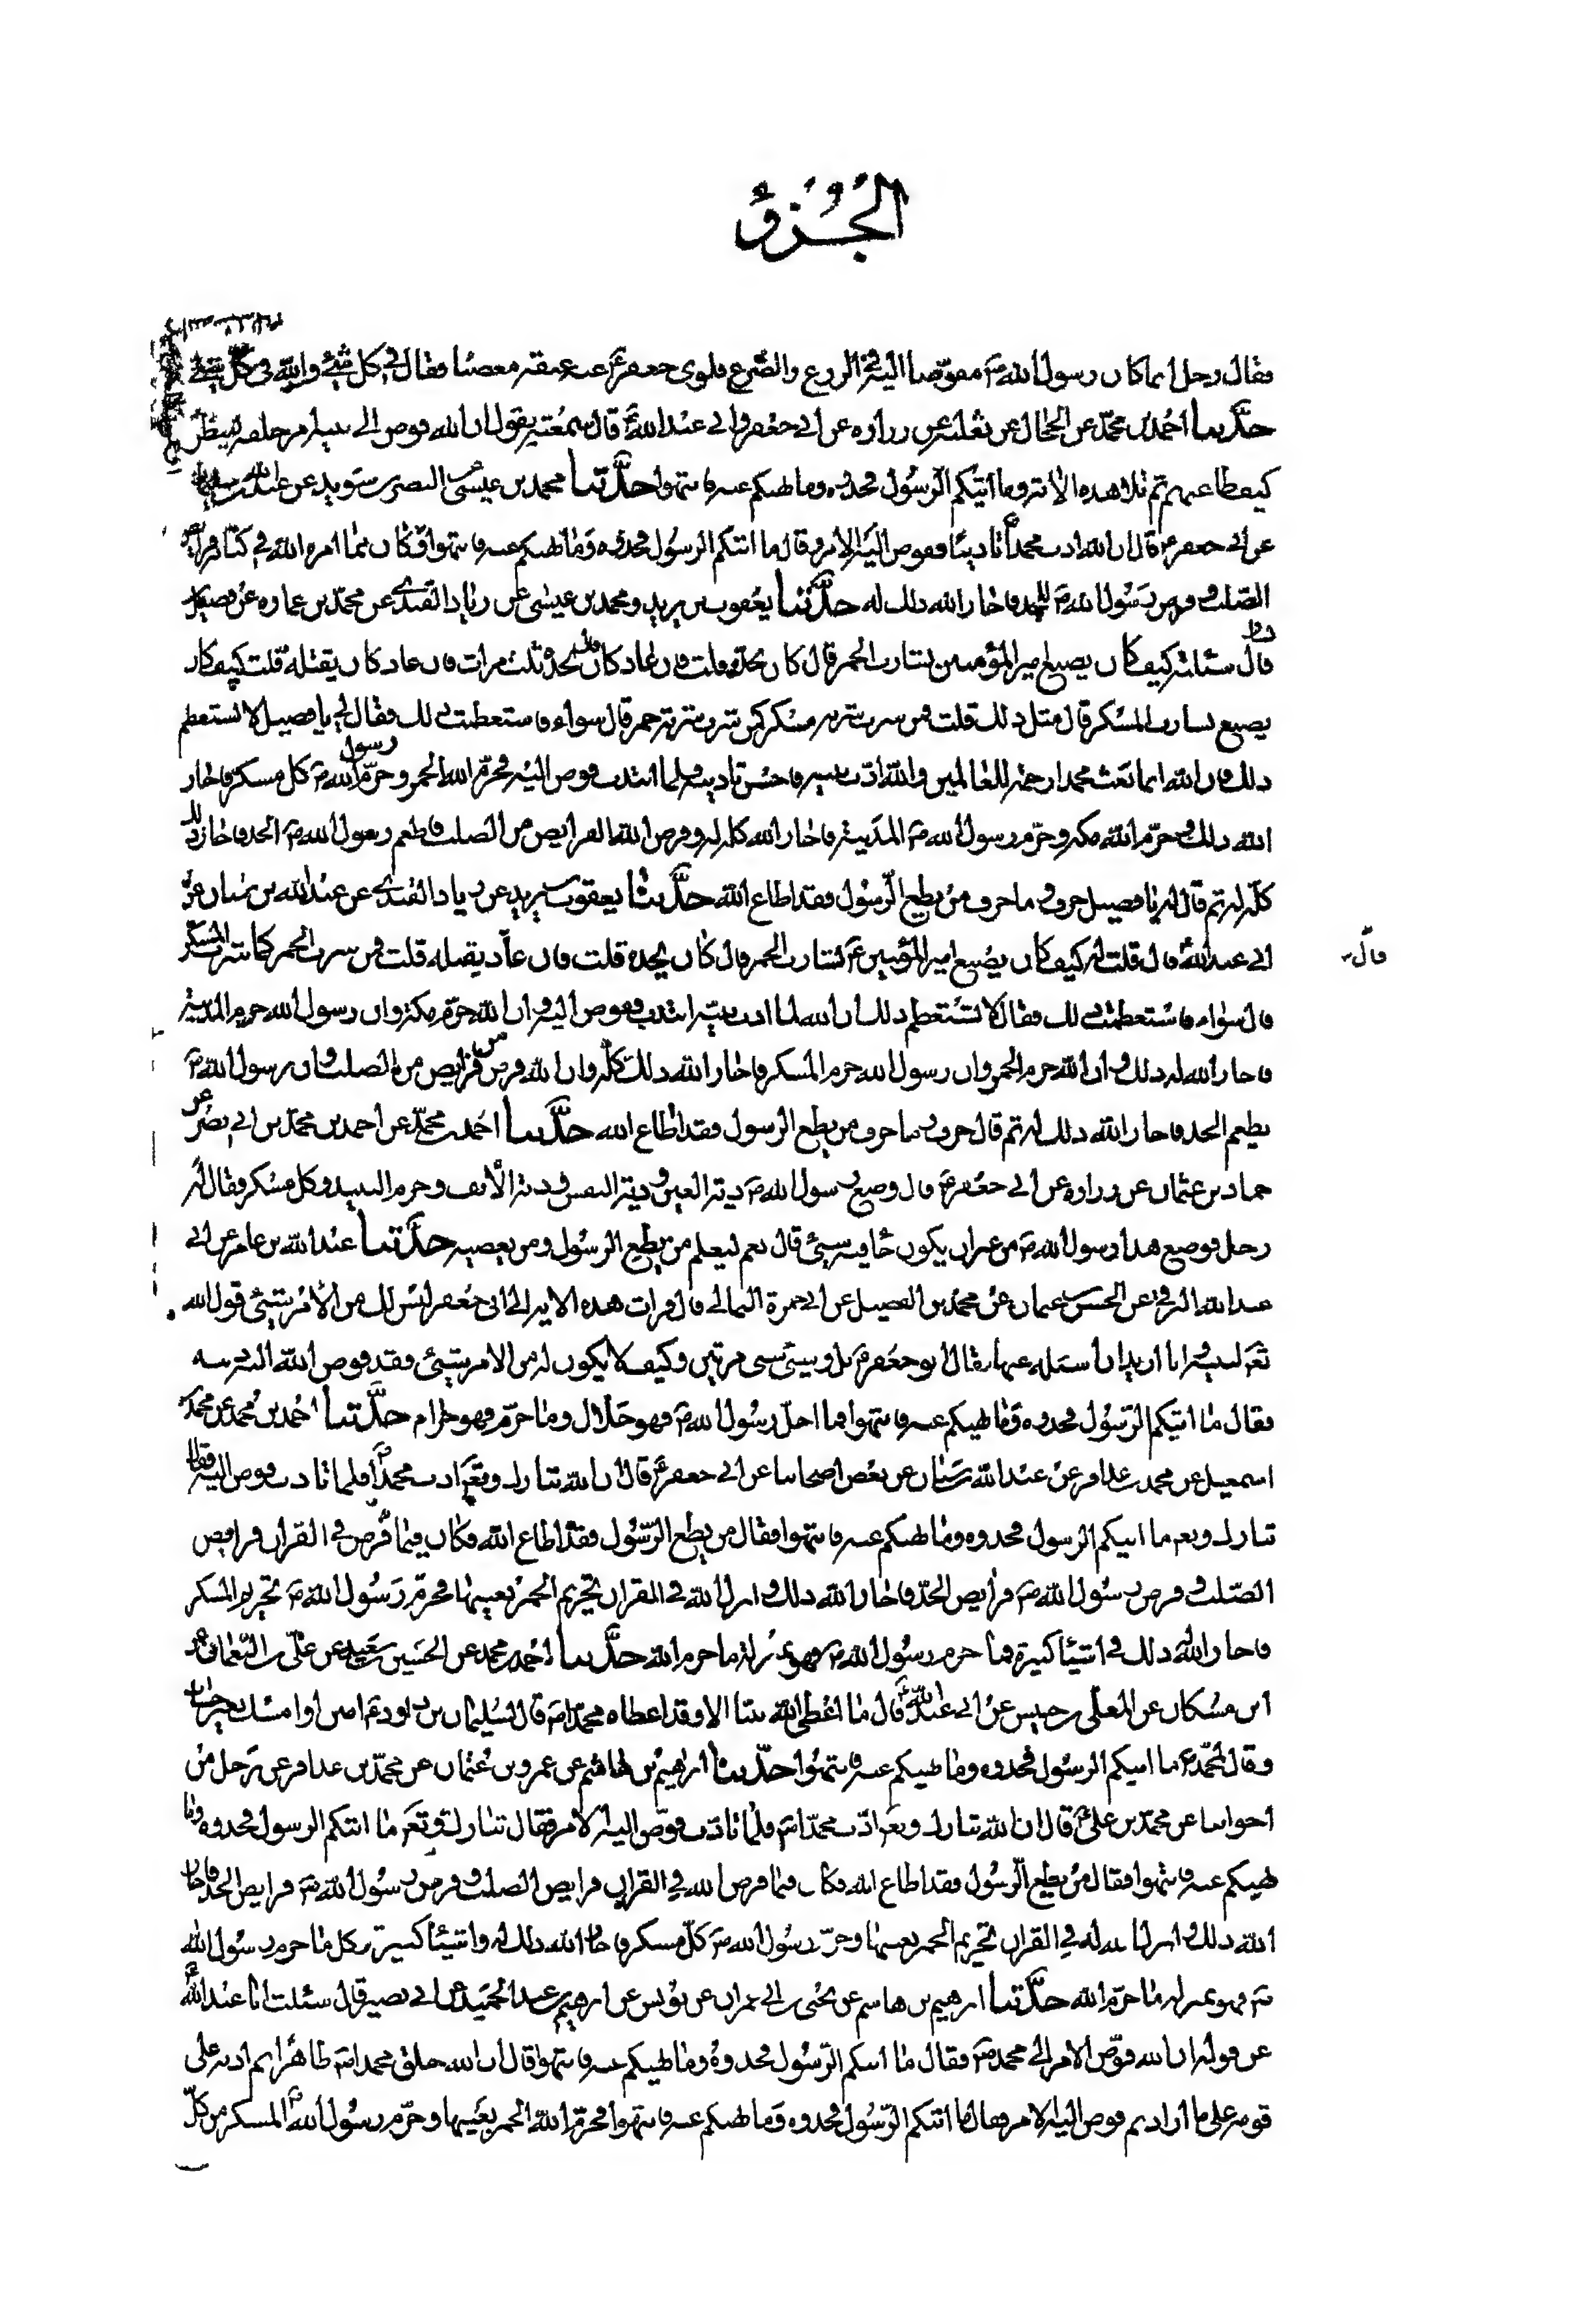 الجُزؤ
فقال رجل انما كان رسول الله ص مفوّضا اليه فى الزرع والضّرع فلوى جعفر ع عنه عنقه مغضبا فقال فى كل شئ والله فى كل شئ
حدَّثنا احمد بن محمّد عن الحجّال عن ثعلبة عن زرارة عن ابى جعفر وابى عبد الله ع قال سمعته يقول ان الله فوض الى نبيه امر خلقه لينظر
كيف طاعتهم ثم تلا هذه الاية وما اتيكم الرسول فخذوه وما نهيكم عنه فانتهوا حدَّثنا محمد بن عيسى عن النضر بن سويد عن عبد الله بن سليمان
عن ابى جعفر ع قال ان الله ادب محمدا تاديبا ففوض اليه الامر وقال ما اتيكم الرسول فخذوه وما نهيكم عنه فانتهوا وكان مما امره الله فى كتابه فرايض
الصّلب وفرض رسول الله ص للجد فاجاز الله ذلك له حدَّثنا يعقوب بن يزيد ومحمد بن عيسى عن زياد القندى عن محمّد بن عمارة عن فضيل
قال سئلته كيف كان يصنع امير المؤمنين بشارب الخمر قال كان يحدّه قلت فان عاد قال كان يحده ثلث مرات فان عاد كان يقتله قلت كيف كان
يصنع بشارب المسكر قال مثل ذلك قلت فمن شرب شربة مسكر كمن شرب شربة خمر قال سواء فاستعظمت ذلك فقال لى يا فضيل لا تستعظم
ذلك فان الله انما بعث محمدا رحمة للعالمين والله ادّب نبيه فاحسن تاديبه فلما ائتدب فوض اليه فحرّم الله الخمر وحرّم رسول الله ص كل مسكر فاجاز
الله ذلك له وحرّم الله مكة وحرّم رسول الله ص المدينة فاجاز الله كله له وفرض الله الفرايض من الصلب فاطعم رسول الله ص الجد فاجاز ذلك
كلّه له ثم قال له يا فضيل حرف وما حرف من يطع الرّسول فقد اطاع الله حدَّثنا يعقوب بن يزيد عن زياد القندى عن عبد الله بن سنان عن
ابى عبد الله ع قال قلت له كيف كان يصنع امير المؤمنين ع بشارب الخمر قال كان يحده قلت فان عاد يقتله قلت فمن شرب الخمر كمن شرب المسكر
قالَ
قال سواء فاستعظمت ذلك فقال لا تستعظم ذلك ان الله لما ادب نبيّه ائتدب ففوض اليه وان الله حرّم مكة وان رسول الله حرم المدينة
فاجاز الله له ذلك وان الله حرم الخمر وان رسول الله حرم المسكر فاجاز الله ذلك كلّه وان الله فرض فرايض من الصلب وان رسول الله ص
يطعم الجد فاجاز الله ذلك له ثم قال حرف وما حرف من يطع الرسول فقد اطاع الله حدَّثنا احمد بن محمّد عن احمد بن محمّد بن ابى نصر عن
حماد بن عثمان عن زرارة عن ابى جعفر ع قال وضع رسول الله ص دية العين ودية النفس ودية الانف وحرم النبيذ وكل مسكر فقال له
رجل فوضع هذا رسول الله ص من غير ان يكون جاء فيه شئ قال نعم ليعلم من يطع الرسول ومن يعصيه حدَّثنا عبد الله بن عامر عن ابى
عبد الله البرقى عن الحسن بن عثمان عن محمد بن الفضيل عن ابى حمزة الثمالى قال قرات هذه الاية الى ابى جعفر ليس لك من الامر شئ قول الله
فقال ما اتيكم الرّسول فخذوه وما نهيكم عنه فانتهوا فما احلّ رسول الله ص فهو حلال وما حرّم فهو حرام حدَّثنا احمد بن محمد عن محمد بن
اسمعيل عن محمد بن عذافر عن عبد الله بن سنان عن بعض اصحابنا عن ابى جعفر ع قال ان الله تبارك وتع ادب محمدا ص فلما تادب فوض اليه فقال
تبارك وتع ما اتيكم الرسول فخذوه وما نهيكم عنه فانتهوا فقال من يطع الرّسول فقد اطاع الله فكان فيما فرض فى القران فرايض
الصّلب وفرض رسول الله ص فرايض الجدّ فاجاز الله ذلك وانزل الله فى القران تحريم الخمر بعينها فحرّم رسول الله ص تحريم المسكر
فاجاز الله ذلك فى اشياء كثيرة فما حرم رسول الله ص فهو بمنزلة ما حرم الله حدَّثنا احمد بن محمد عن الحسين بن سعيد عن علىّ بن النّعمان عن
ابن مسكان عن المعلّى بن خنيس عن ابى عبد الله ع قال ما اعطى الله نبيا الا وقد اعطاه محمدا ص قال لسليمان بن داود ع امنن او امسك بغير حساب
وقال لمحمّد ص ما اتيكم الرسول فخذوه وما نهيكم عنه فانتهوا حدّثنا ابرهيم بن هاشم عن عمرو بن عثمان عن محمّد بن عذافر عن رجل من
اخواننا عن محمّد بن على ع قال ان الله تبارك وتع ادّب محمّدا ص فلما تادّب فوّض اليه الامر فقال تبارك وتع ما اتيكم الرسول فخذوه وما
نهيكم عنه فانتهوا فقال من يطع الرّسول فقد اطاع الله فكان فيما فرض الله فى القران فرايض الصلب وفرض رسول الله ص فرايض الجد فاجاز
الله ذلك وانزل الله فى القران تحريم الخمر بعينها وحرّم رسول الله ص كلّ مسكر فاجاز الله ذلك له واشياء كثيرة وكل ما حرم رسول الله
ص فهو بمنزلة ما حرّم الله حدَّثنا ابرهيم بن هاشم عن يحيى بن ابى عمران عن يونس عن ابرهيم بن عبد الحميد عن ابى بصير قال سئلت ابا عبد الله
عن قوله ان الله فوّض الامر الى محمد ص فقال ما اتيكم الرّسول فخذوه وما نهيكم عنه فانتهوا قال ان الله خلق محمدا ص طاهرا ثم ادبه على
قومه على ما اراد ثم فوض اليه الامر فقال ما اتيكم الرّسول فخذوه وما نهيكم عنه فانتهوا فحرّم الله الخمر بعينها وحرّم رسول الله ص المسكر من كلّ